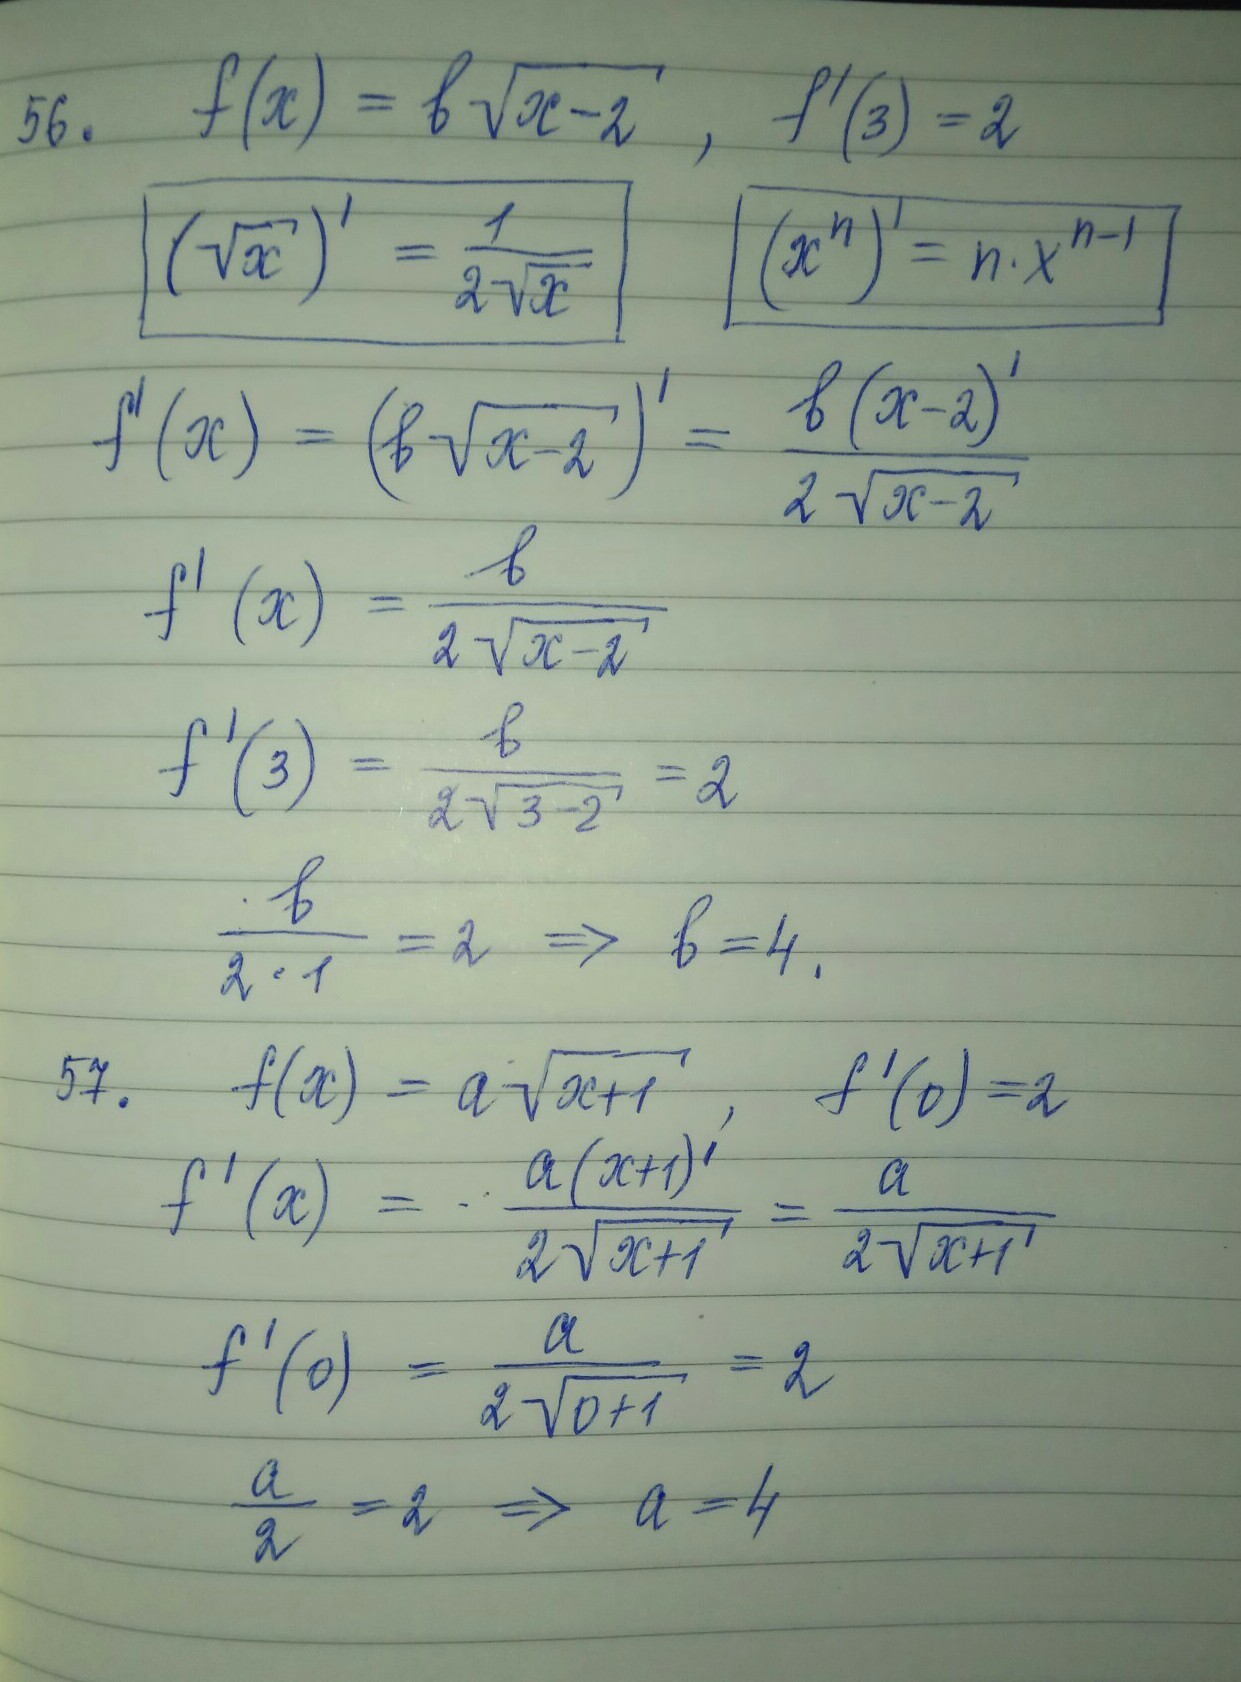 56. f(x) = b√(x-2) , f'(3) = 2
(√x)' = 1/(2√x) (xⁿ)' = n·xⁿ⁻¹
f'(x) = (b√(x-2))' = b(x-2)'/(2√(x-2))
f'(x) = b/(2√(x-2))
f'(3) = b/(2√(3-2)) = 2
b/(2·1) = 2 ⇒ b = 4.
57. f(x) = a√(x+1) , f'(0) = 2
f'(x) = a(x+1)'/(2√(x+1)) = a/(2√(x+1))
f'(0) = a/(2√(0+1)) = 2
a/2 = 2 ⇒ a = 4